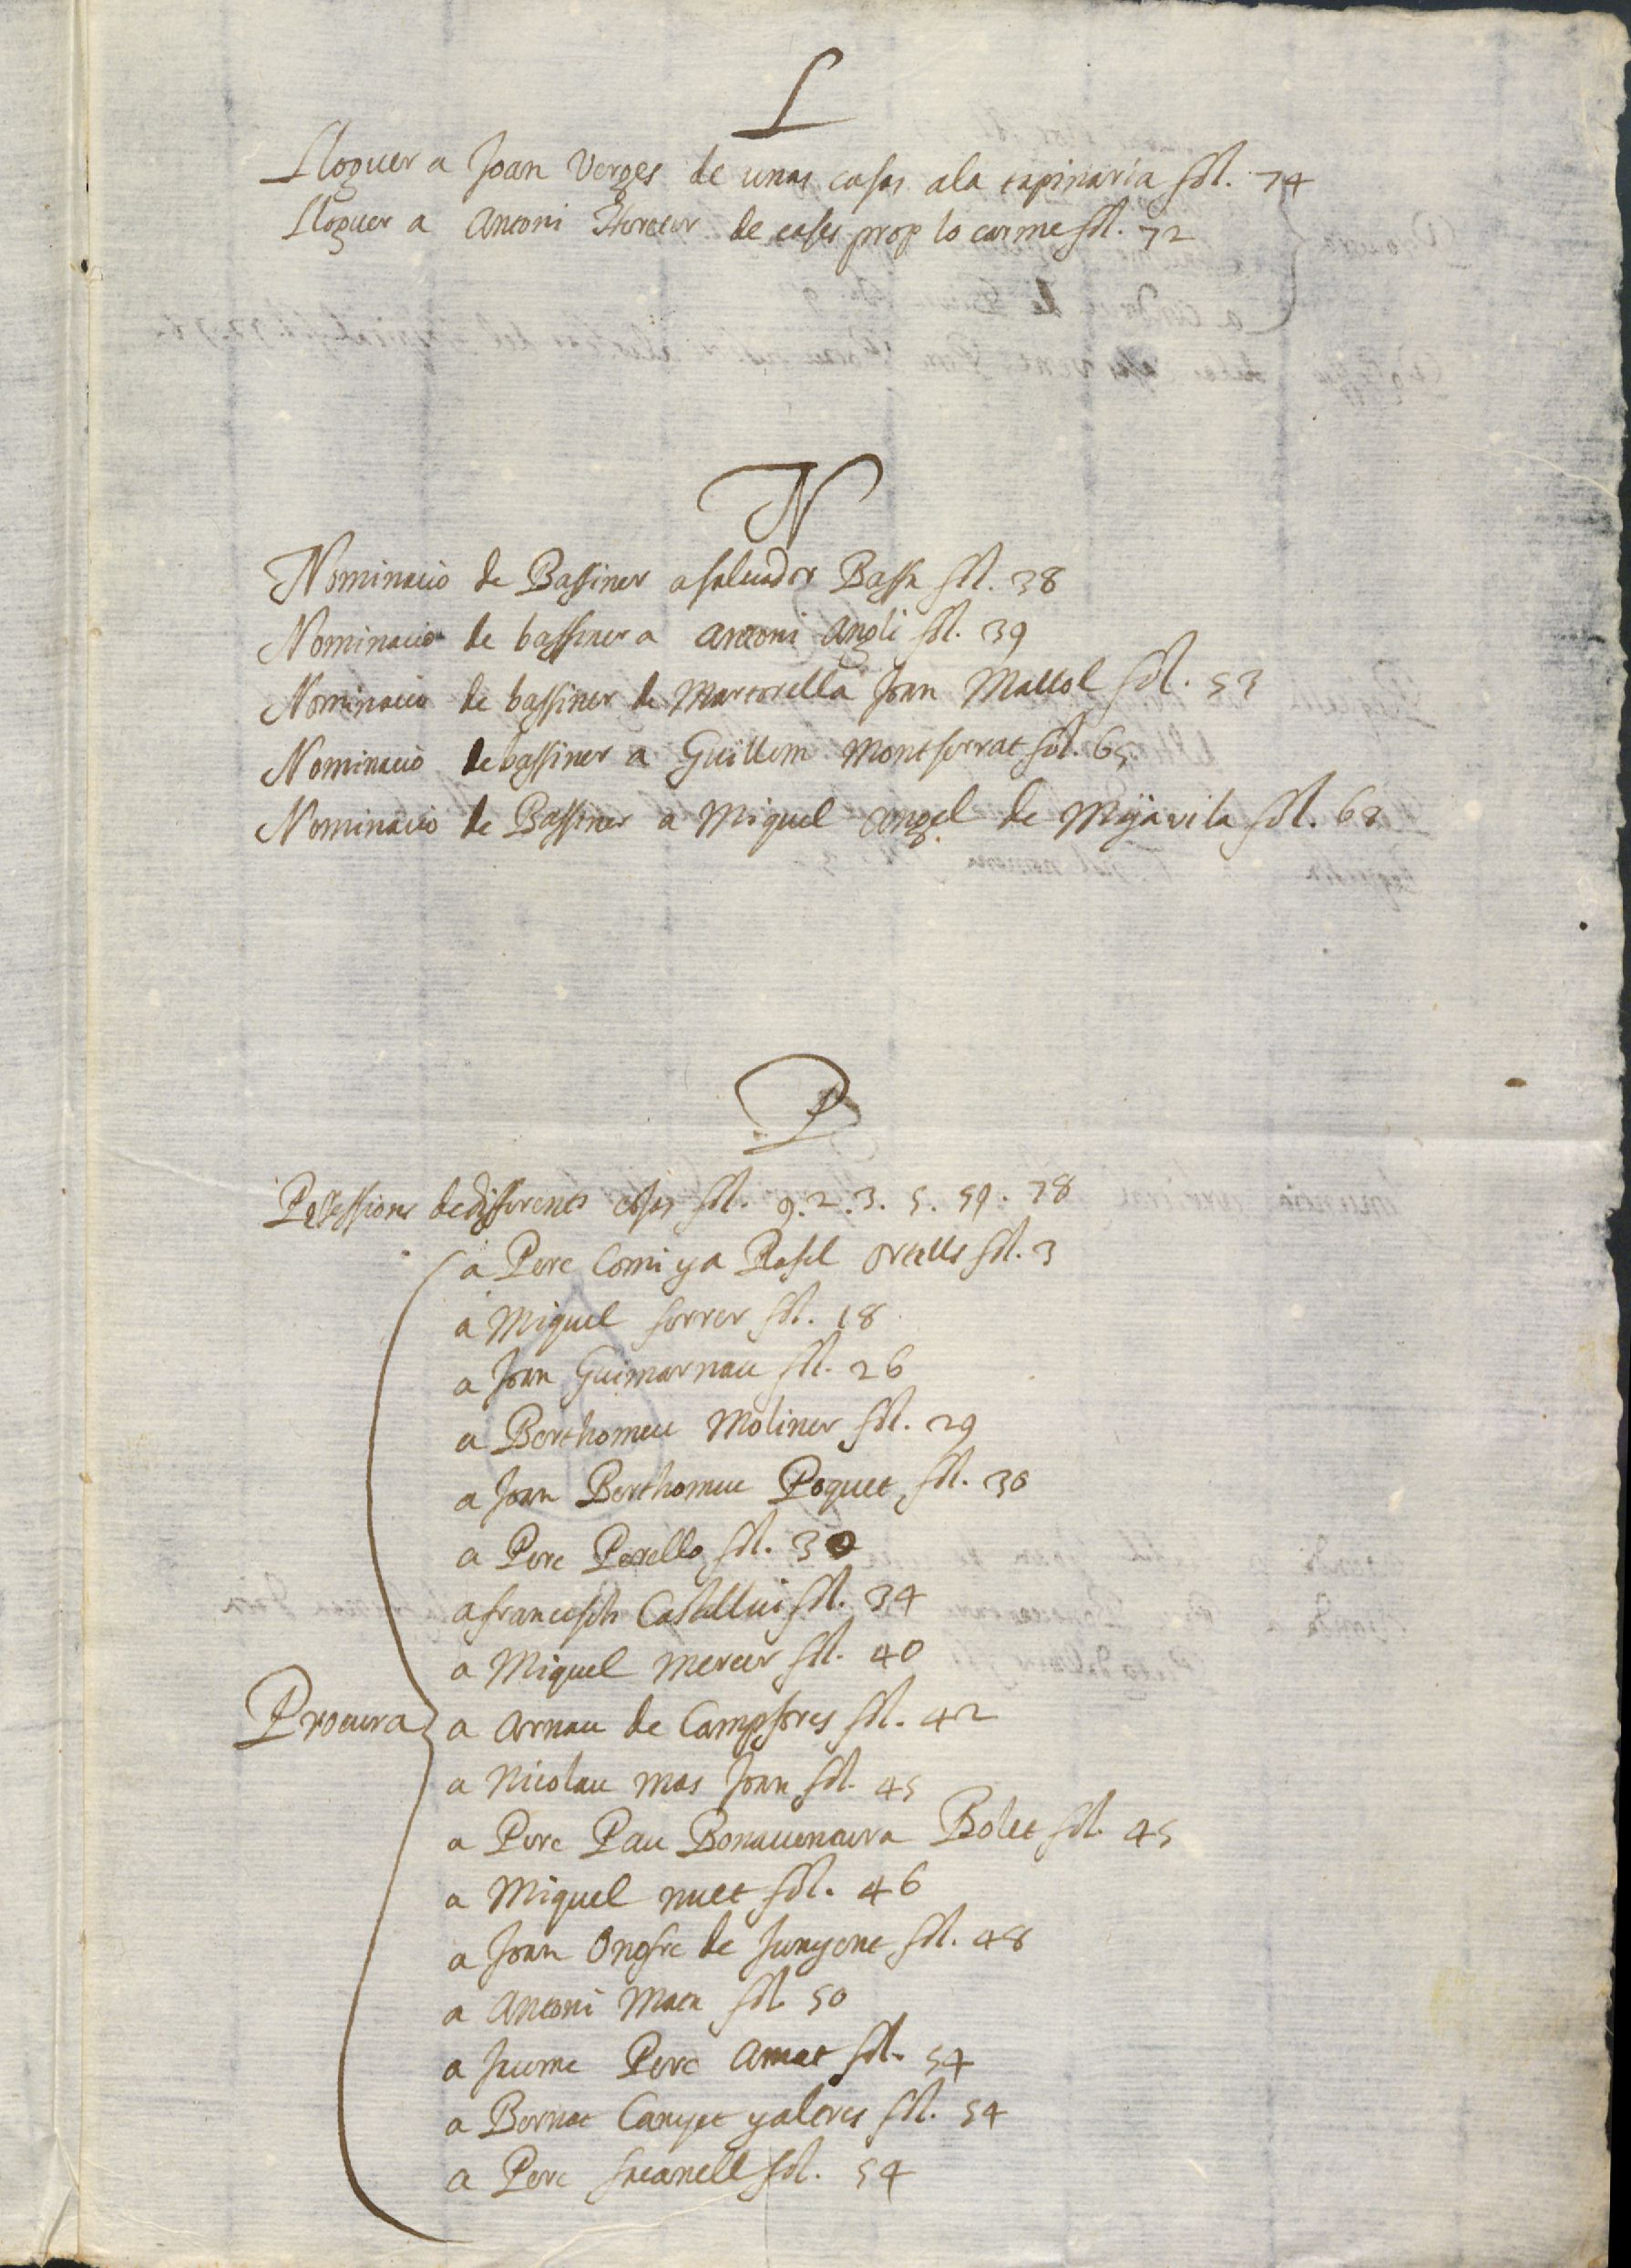 L
Lloguer a Joan Verges de unas casas ala tapinaria fol. 74
Lloguer a Antoni Hereter de cases prop lo carme fol. 72
N
Nominacio de Bassiner a saluador Bassa fol. 38
Nominacio de bassiner a Antoni Angli fol. 39
Nominacio de bassiner de Martorell a Joan Mallol fol. 53
Nominacio de bassiner a Guillem Montserrat fol. 65
Nominacio de Bassiner a Miquel Angel de Mijavila fol. 68
P
Possessions de differents cosas fol. 9. 2. 3. 5. 59. 78
a Pere Comi y a Rafel Ortells fol. 3
a Miquel ferrer fol. 18
a Joan Guimarnau fol. 26
a Berthomeu Moliner fol. 29
a Joan Berthomeu Poquet fol. 30
a Pere Perello fol. 30
a francesch Castellui fol. 34
a Miquel mercer fol. 40
Procura a Arnau de Campfores fol. 42
a Nicolau mas Joan fol. 45
a Pere Pau Bonauentura Bolet fol. 45
a Miquel nuet fol. 46
a Joan Onofre de Junyent fol. 48
a Antoni Mata fol. 50
a Jaume Pere Amat fol. 54
a Bernat Canyet y altres fol. 54
a Pere fol. 54